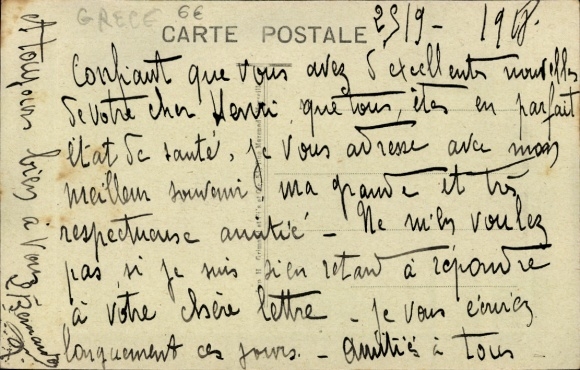 GRECE 6€
CARTE POSTALE
25/9 - 1918.
Confiant que vous avez d'excellentes nouvelles
de votre cher Henri, que tous, êtes en parfait
état de santé, je vous adresse avec mon
meilleur souvenir ma grande et très
respectueuse amitié - Ne m'en voulez
pas, si je suis bien retard à répondre
à votre chère lettre - je vous écrirez
longuement ces jours. - Amitiés à tous
et toujours bien à vous